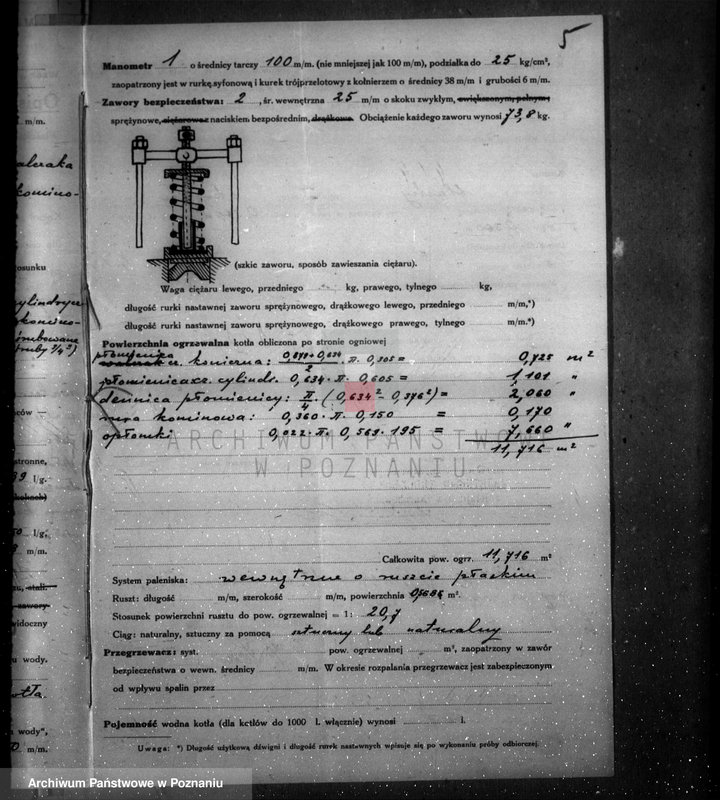 5
Manometr 1 o średnicy tarczy 100 m/m. (nie mniejszej jak 100 m/m), podziałka do 25 kg/cm²,
zaopatrzony jest w rurkę syfonową i kurek trójprzelotowy z kołnierzem o średnicy 38 m/m i grubości 6 m/m.
Zawory bezpieczeństwa: 2, śr. wewnętrzna 25 m/m o skoku zwykłym, zwiększonym, pełnym;
sprężynowe, ciężarowe z naciskiem bezpośrednim, drążkowe. Obciążenie każdego zaworu wynosi 73,8 kg.
(szkic zaworu, sposób zawieszania ciężaru).
Waga ciężaru lewego, przedniego kg, prawego, tylnego kg,
długość rurki nastawnej zaworu sprężynowego, drążkowego lewego, przedniego m/m,*)
długość rurki nastawnej zaworu sprężynowego, drążkowego prawego, tylnego m/m.*)
Powierzchnia ogrzewalna kotła obliczona po stronie ogniowej
płomienica
cz. konierna: 0,879+0,634 / 2 . π. 0,305 = 0,725 m²
płomienica cz. cylindr. 0,634 . π . 0,605 = 1,101 "
dennica płomienicy: π/4 . (0,634² - 0,376²) = 2,060 "
rura kominowa: 0,360 . π . 0,150 = 0,170
opłomki 0,022 . π. 0,569 . 195 = 7,660 "
11,716 m²
ARCHIWUM PAŃSTWOWE
W POZNANIU
Całkowita pow. ogrz. 11,716 m²
System paleniska: wewnętrzne o ruszcie płaskim
Ruszt: długość m/m, szerokość m/m, powierzchnia m².
Stosunek powierzchni rusztu do pow. ogrzewalnej = 1: 20,7
Ciąg: naturalny, sztuczny za pomocą sztuczny lub naturalny
Przegrzewacz: syst. pow. ogrzewalnej m², zaopatrzony w zawór
bezpieczeństwa o wewn. średnicy m/m. W okresie rozpalania przegrzewacz jest zabezpieczonym
od wpływu spalin przez
Pojemność wodna kotła (dla kotłów do 1000 l. włącznie) wynosi l.
Uwaga: *) Długość użytkową dźwigni i długość rurek nastawnych wpisuje się po wykonaniu próby odbiorczej.
Archiwum Państwowe w Poznaniu